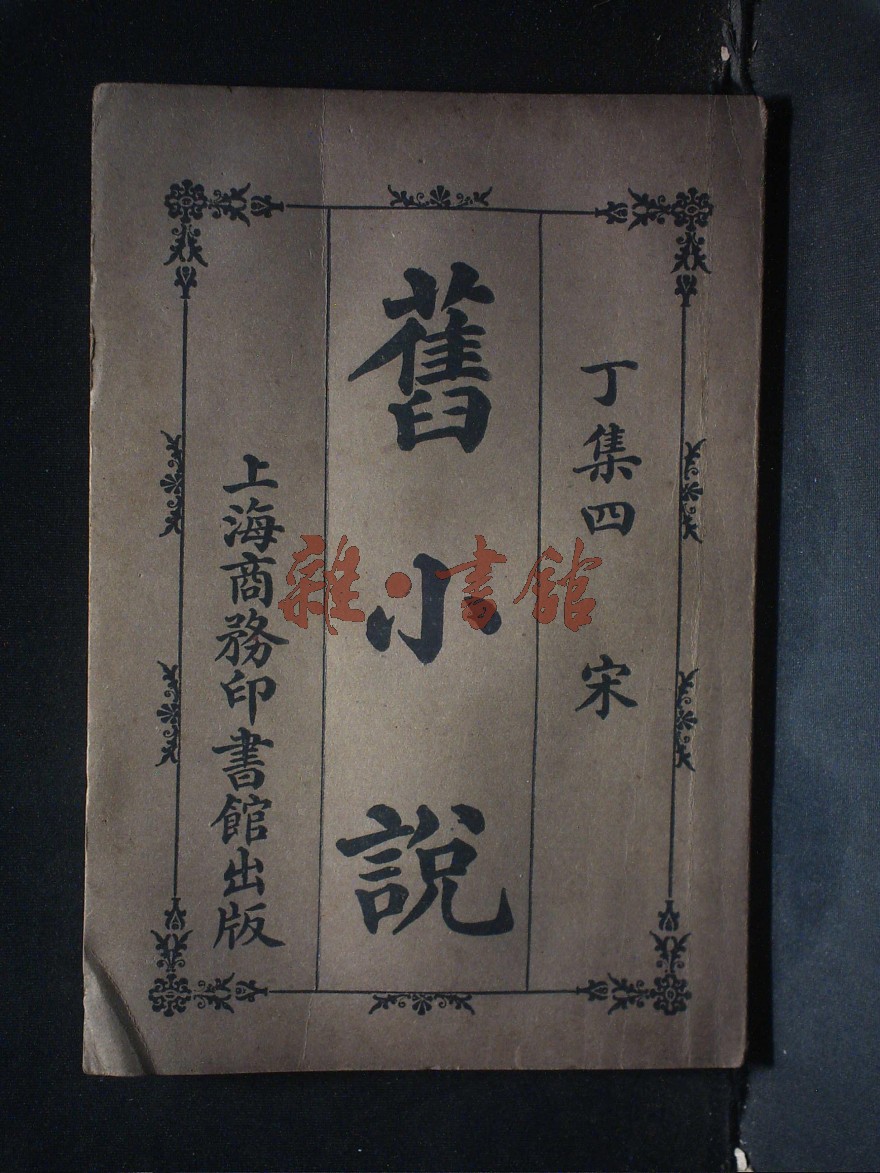 丁集四　宋
舊小說
上海商務印書館出版
雜·書館